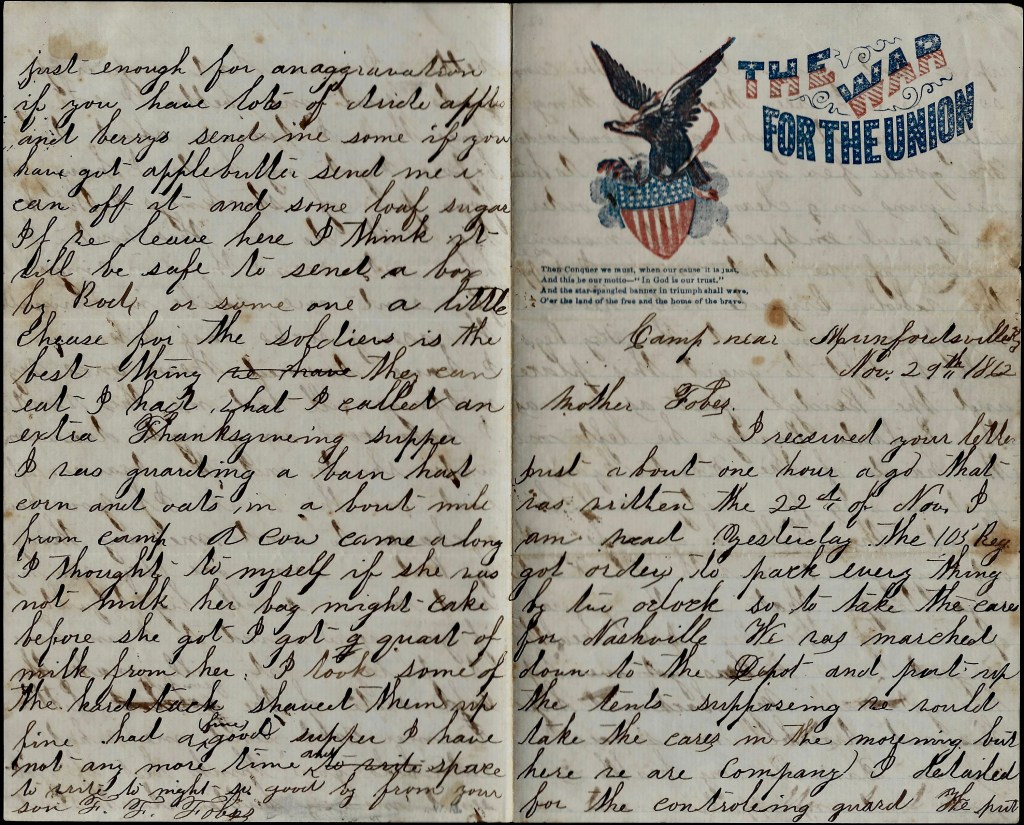 just enough for an aggravation
if you have lots of dride apples
and berrys send me some if you
have got applebutter send me i
can off it and some loaf sugar
If we leave here I think it
will be safe to send a box
by Rock or some one a little
Chease for the soldiers is the
best thing we have they can
eat I had what I called an
extra Thanksgiveing supper
I was guarding a barn had
corn and oats in a bout mile
from camp A cow came along
I thought to myself if she was
not milk her bag might cake
before she got I got a quart of
milk from her. I took some of
the hard tack shaved them up
fine had a (fine) good supper I have
not any more time and to write space
to write to night so good by from your
son F. F. Fobes
THE WAR
FOR THE UNION
Then Conquer we must, when our cause it is just,
And this be our motto—"In God is our trust,"
And the star-spangled banner in triumph shall wave,
O'er the land of the free and the home of the brave.
Camp near Munfordsville Ky
Nov. 29th 1862
Mother Fobes.
I received your letter
just about one hour a go that
was written the 22nd of Nov. I
am read Yesterday the 105 Reg.
got orders to pack every thing
by two oclock so to take the cares
for Nashville We was marched
down to the Depot and put up
the tents supposeing we would
take the cares in the morening but
here we are Company I detailed
for the controleing guard He put